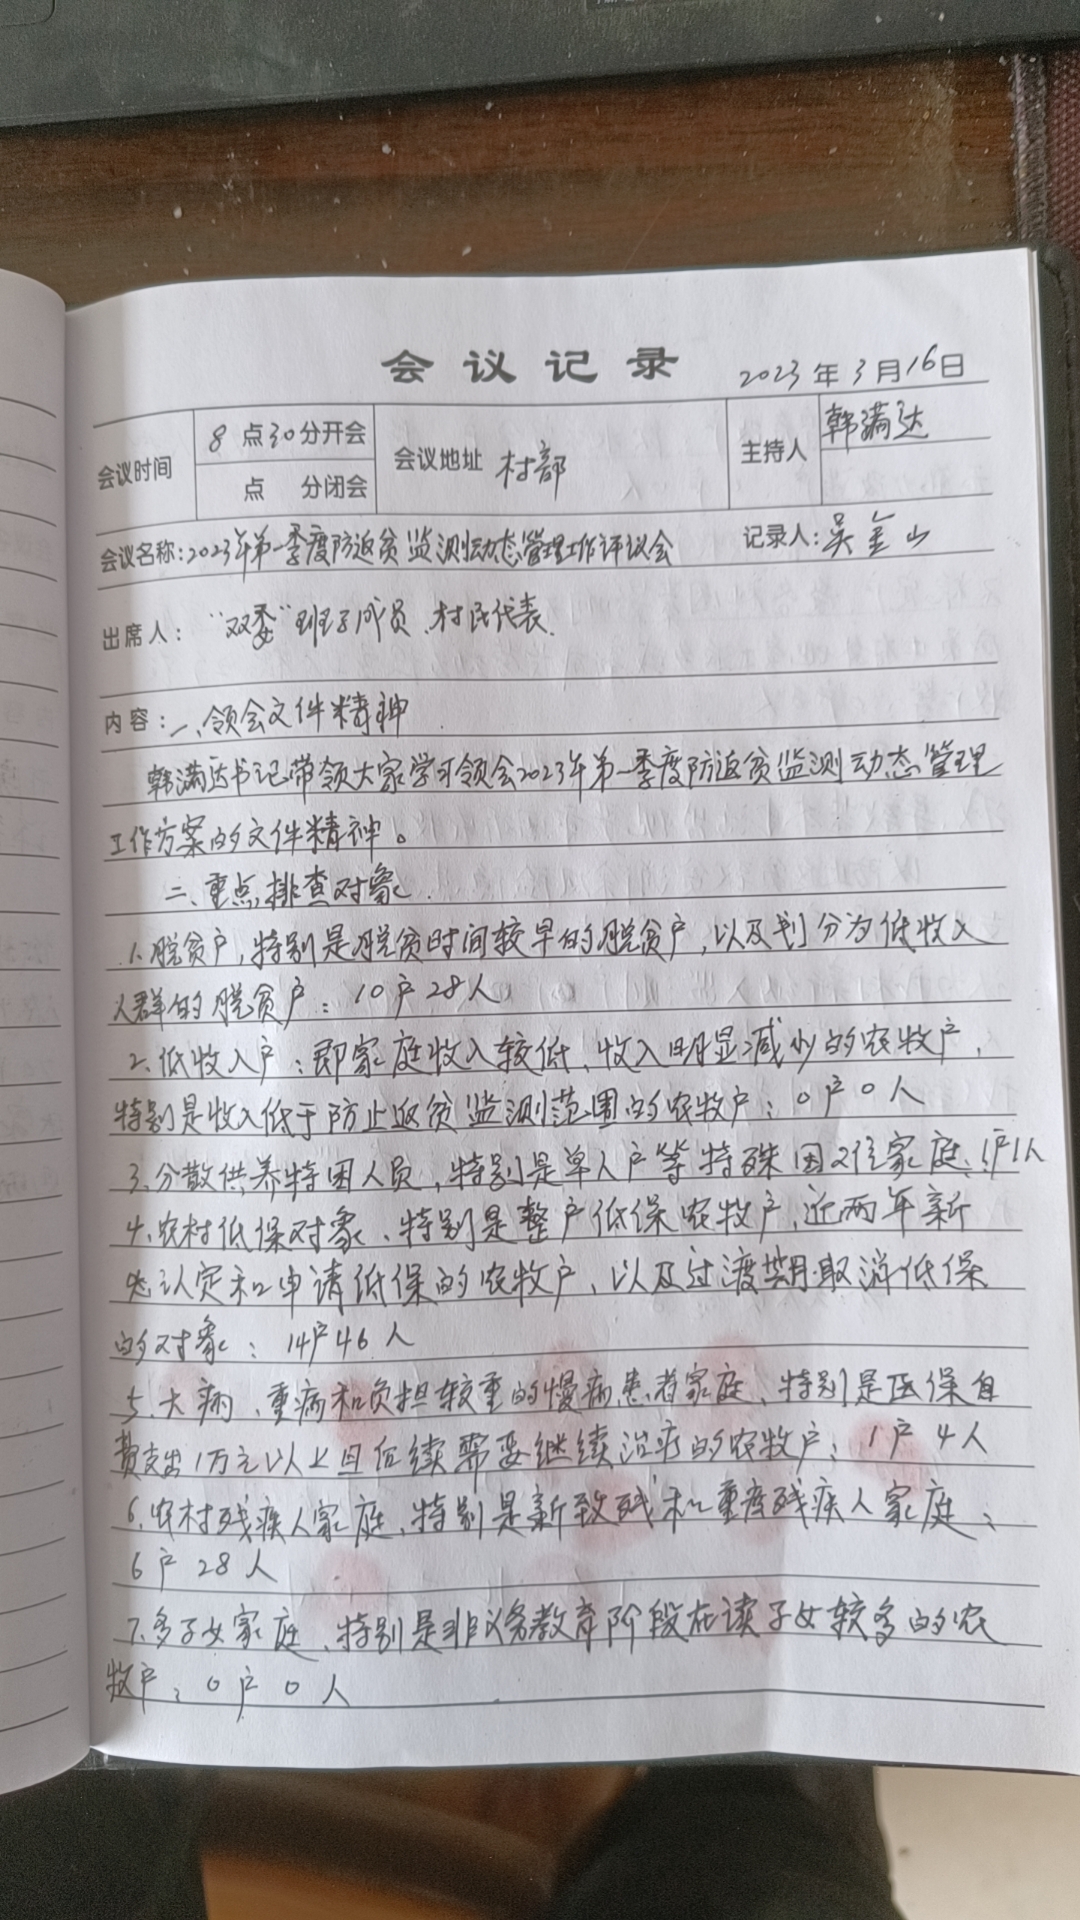 会议记录
2023年3月16日
会议时间 8点30分开会 点 分闭会 会议地址 村部 主持人 韩满达
会议名称：2023年第一季度防返贫监测动态管理工作评议会 记录人：吴金山
出席人： “双委”班子成员、村民代表.
内容：一、领会文件精神
韩满达书记带领大家学习领会2023年第一季度防返贫监测动态管理
工作方案的文件精神。
二、重点排查对象.
1.脱贫户，特别是脱贫时间较早的脱贫户，以及划分为低收入
人群的脱贫户：10户28人
2.低收入户：即家庭收入较低、收入明显减少的农牧户，
特别是收入低于防止返贫监测范围的农牧户：0户0人
3.分散供养特困人员，特别是单人户等特殊困难家庭、1户1人
4.农村低保对象、特别是整户低保农牧户、近两年新
认定和申请低保的农牧户、以及过渡期取消低保
的对象：14户46人
5.大病、重病和负担较重的慢病患者家庭、特别是医保自
费支出1万元以上且后续需要继续治疗的农牧户：1户4人
6.农村残疾人家庭、特别是新致残和重度残疾人家庭：
6户28人
7.多子女家庭、特别是非义务教育阶段在读子女较多的农
牧户：0户0人